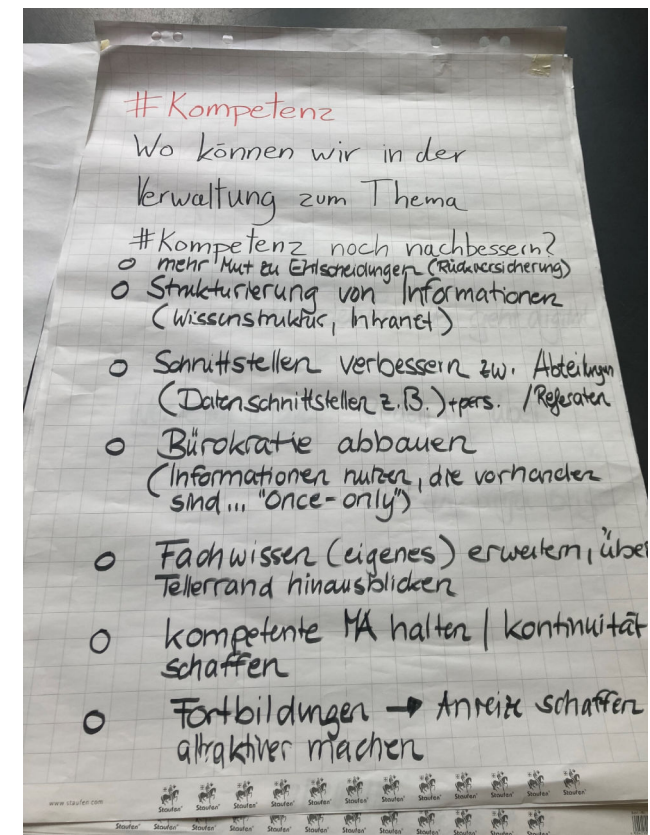 #Kompetenz
Wo können wir in der
Verwaltung zum Thema
#Kompetenz noch nachbessern?
o mehr Mut zu Entscheidungen (Rückversicherung)
o Strukturierung von Informationen
(Wissenstruktur, Intranet)
o Schnittstellen verbessern zw. Abteilungen
(Datenschnittstellen z.B.) + pers. /Referaten
o Bürokratie abbauen
(Informationen nutzen, die vorhanden
sind... "Once-only")
o Fachwissen (eigenes) erweitern, über
Tellerrand hinausblicken
o kompetente MA halten / Kontinuität
schaffen
o Fortbildungen → Anreize schaffen
attraktiver machen
www.staufen.com Staufen Staufen Staufen Staufen Staufen Staufen Staufen Staufen Staufen Staufen Staufen Staufen
Staufen Staufen Staufen Staufen Staufen Staufen Staufen Staufen Staufen Staufen Staufen Staufen Staufen